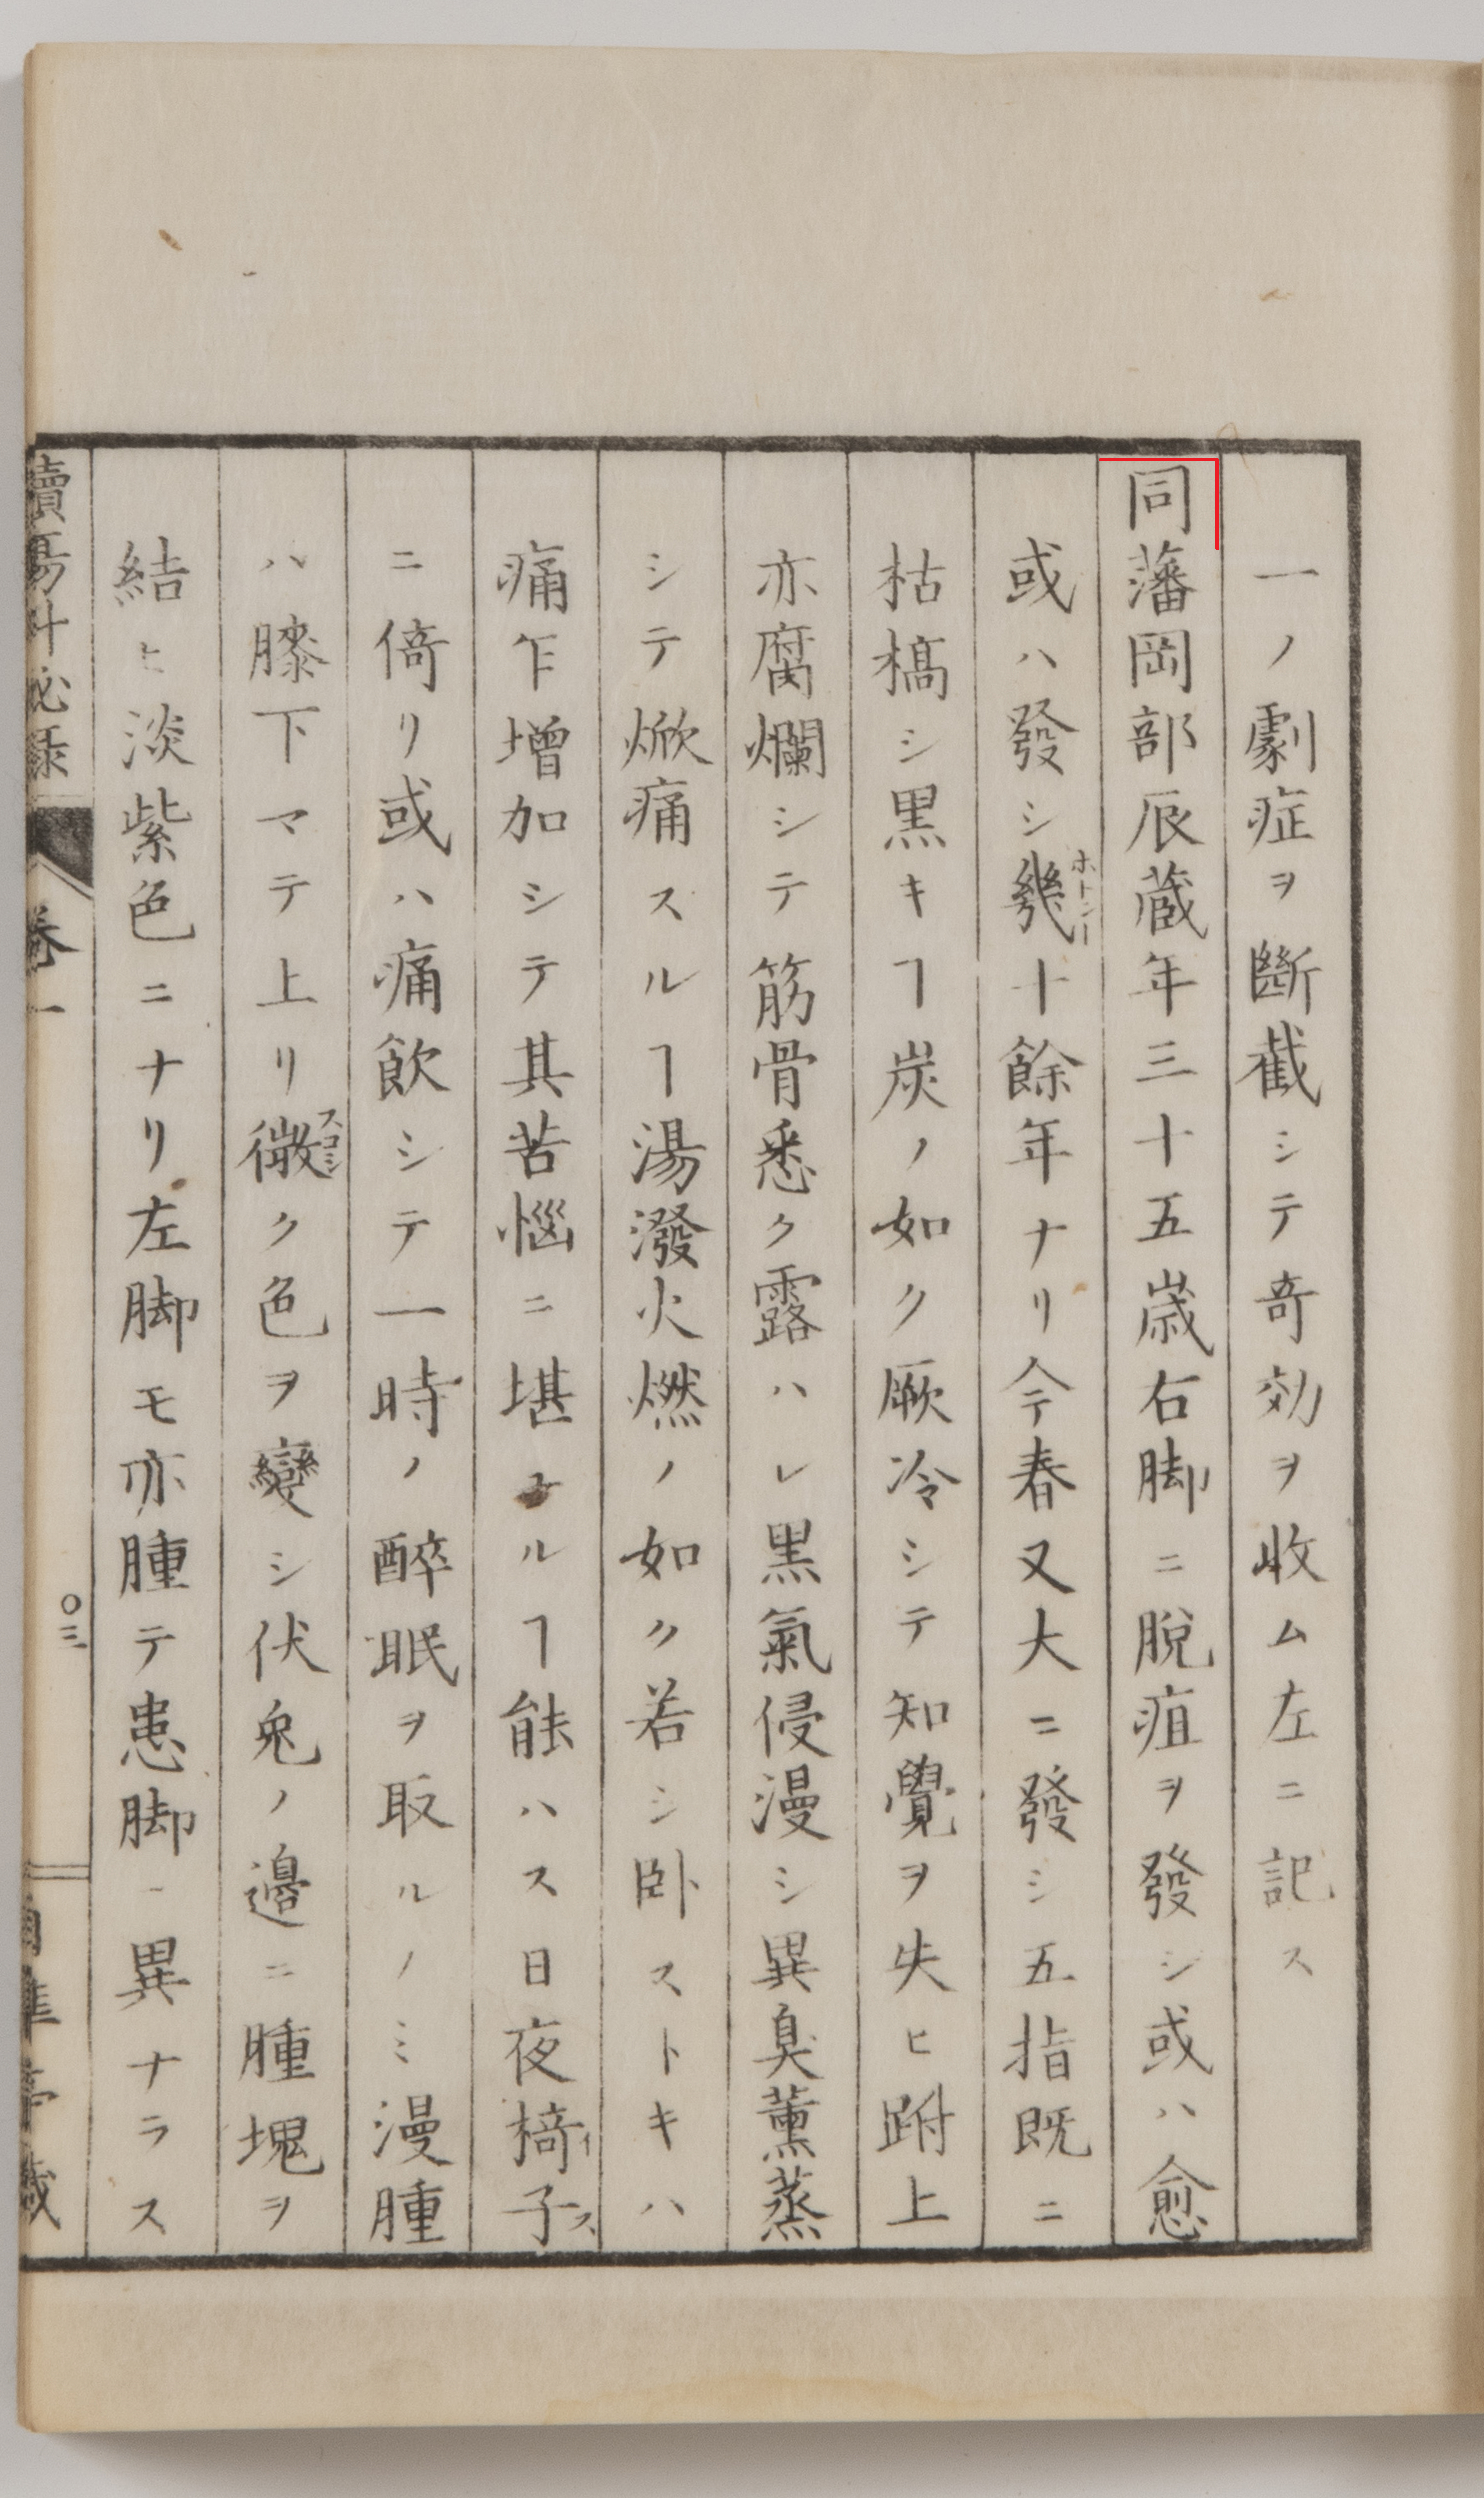 一ノ劇症ヲ斷截シテ奇効ヲ收ム左ニ記ス
同藩岡部辰蔵年三十五歳右脚ニ脱疽ヲ發シ或ハ愈
或ハ發シ幾十餘年ナリ今春又大ニ發シ五指既ニ
ホトンー
枯槁シ黒キヿ炭ノ如ク厥冷シテ知覺ヲ失ヒ跗上
亦腐爛シテ筋骨悉ク露ハレ黒氣侵漫シ異臭薫蒸
シテ焮痛スルヿ湯潑火燃ノ如ク若シ卧ストキハ
痛乍増加シテ其苦惱ニ堪ヱルヿ能ハス日夜椅子
イス
ニ倚リ或ハ痛飲シテ一時ノ醉眠ヲ取ルノミ漫腫
ハ膝下マテ上リ微ク色ヲ變シ伏兎ノ邉ニ腫塊ヲ
スコシ
結ヒ淡紫色ニナリ左脚モ亦腫テ患脚ニ異ナラス
瘍科秘録
巻一
〇三